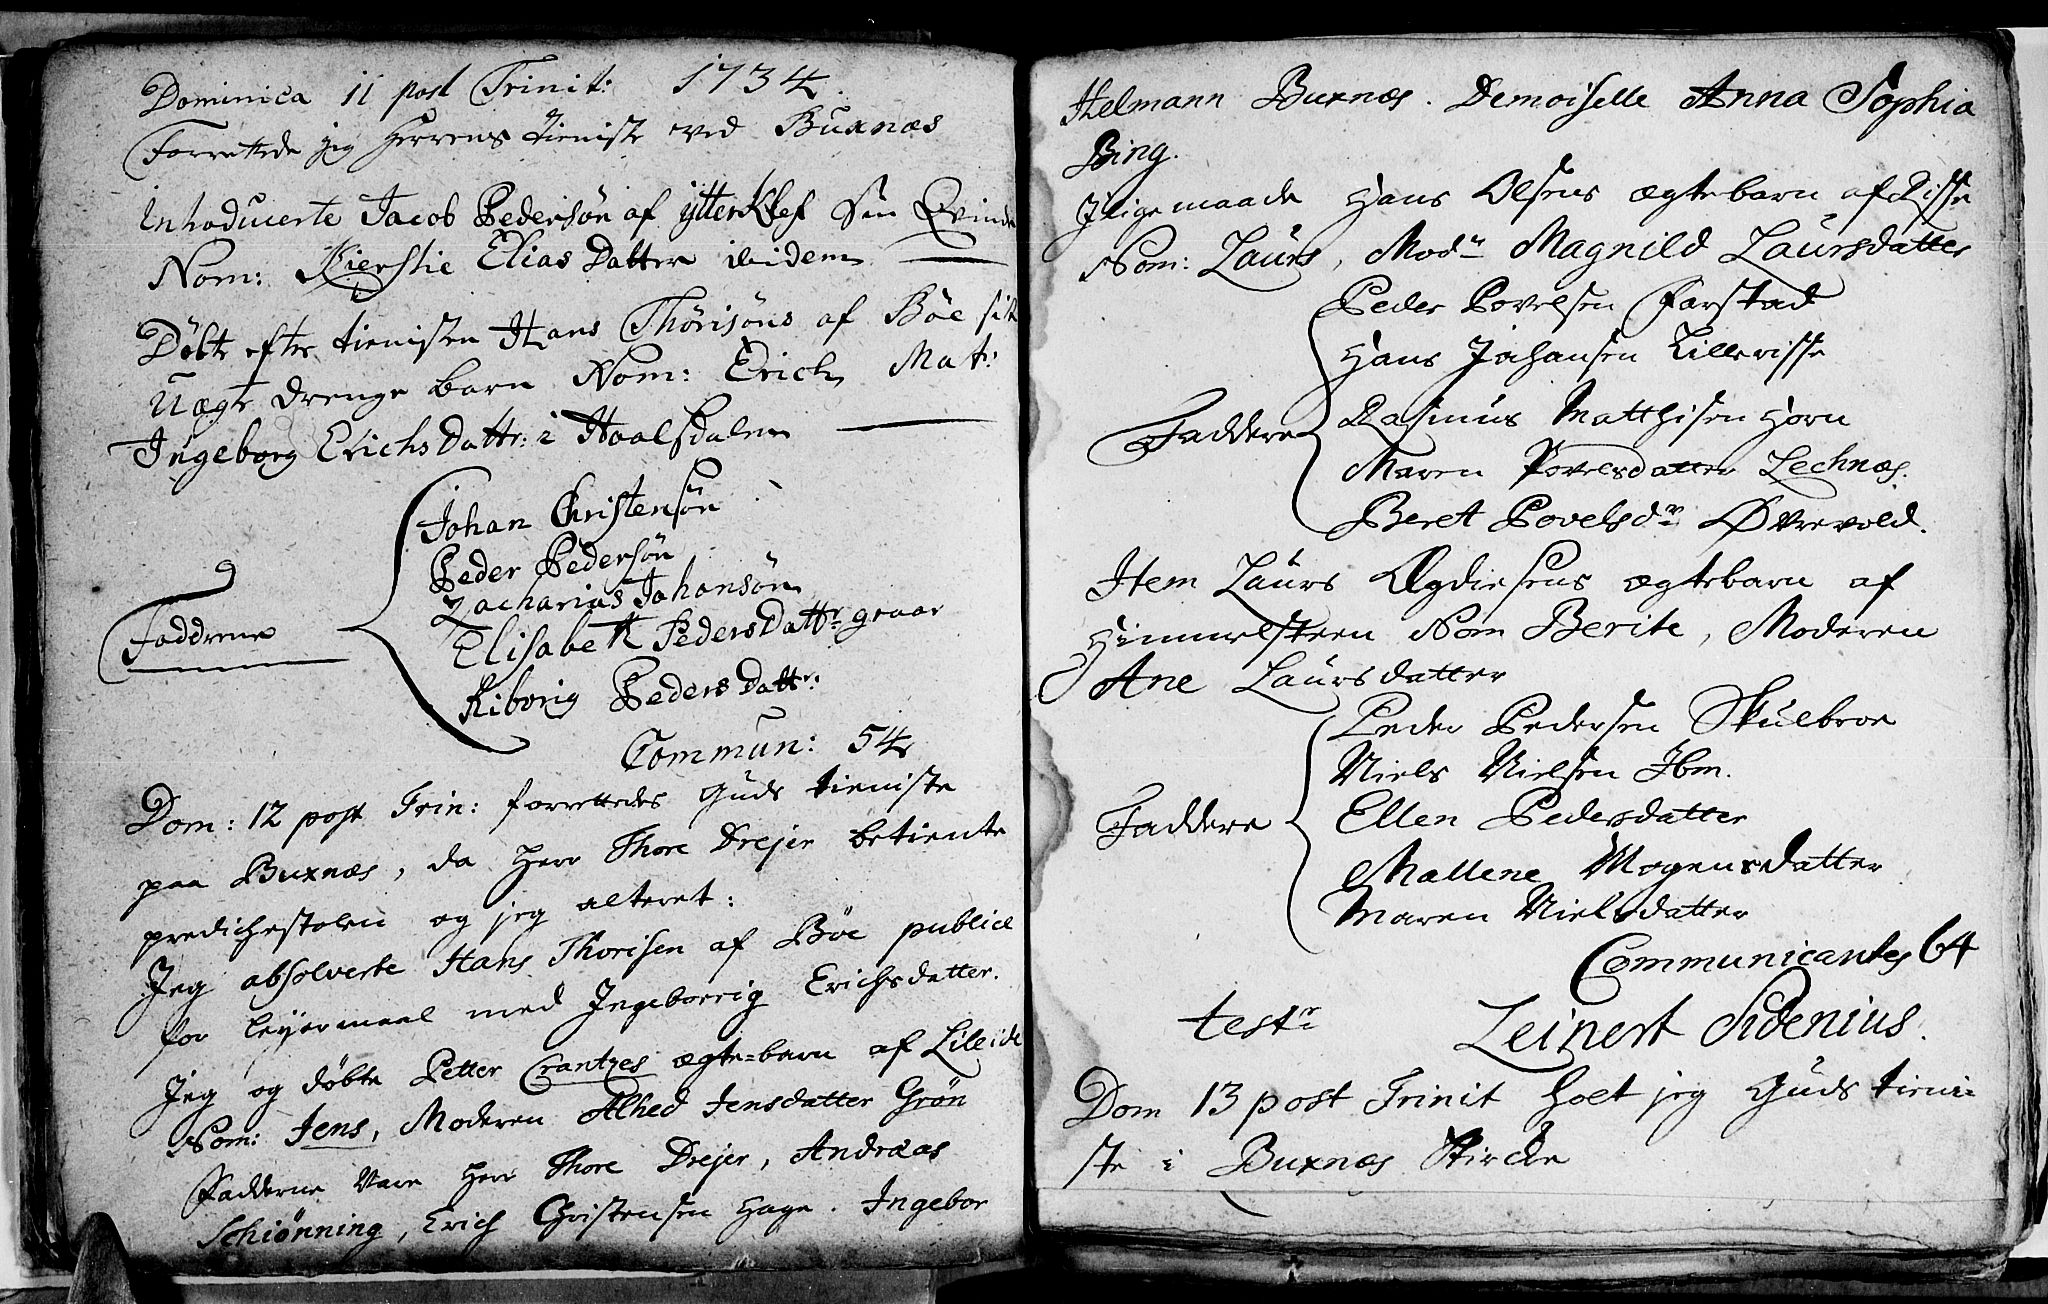 Dominica 11 post Trinit: 1734.
Forrettede jeg Herrens tieniste ved Buxnæs
Introducerte Jacob Pedersøn af ytterKlef sin Qvinde
Nom: Kierstie Elias Datter ibidem
Døbt efter tienisten Hans Thorisøns af Böe sit
Uægte drenge barn Nom: Erich Mat:
Ingeborg Erichs Dattr: i Haalsdalen
Johan Christensøn
Peder Pedersøn
Zacharias Johansøn
Faddrene
Elisabeth Peders Dattr: graar
Kiborig Peders Dattr:
Commun: 54
Dom: 12 post Trin: forrettedes Guds tieniste
paa Buxnæs, da Herr Thore Drejer betiente
predichestolen og jeg alteret:
Jeg absolverte Hans Thorisen af Böe publice
for leyermaal med Ingeborrig Erichsdatter.
Jeg og døbte Petter Crantzes ægte-barn af Lileide
Nom: Jens, Moderen Alhed Jensdatter Grøn
Fadderne vare Herr Thore Drejer, Andreas
Schiønning, Erich Christensen Hage. Ingebor
Helmann Buxnæs. Demoiselle Anna Sophia
Bing.
Jligemaade Hans Olsens ægtebarn af Risse
Nom: Laurs, Modr: Magnild Laursdatter
Peder Povelsen Farstad
Hans Johansen Lillerisse
Faddere
Rasmus Matthisen Horn
Maren Povelsdatter Lechnæs.
Beret Povelsdr: Øvrevold.
Item Laurs Ogdiesens ægtebarn af
Himmelsteen Nom Berite, Moderen
Ane Laursdatter
Peder Pedersen Skulbroe
Niels Nielsen Ibm.
Faddere
Ellen Pedersdatter
Mallene Mogensdatter
Maren Nielsdatter
Communicantes 64
testr: Leinert Sidenius.
Dom 13 post Trinit holt jeg Guds tieni=
ste i Buxnæs Kirche